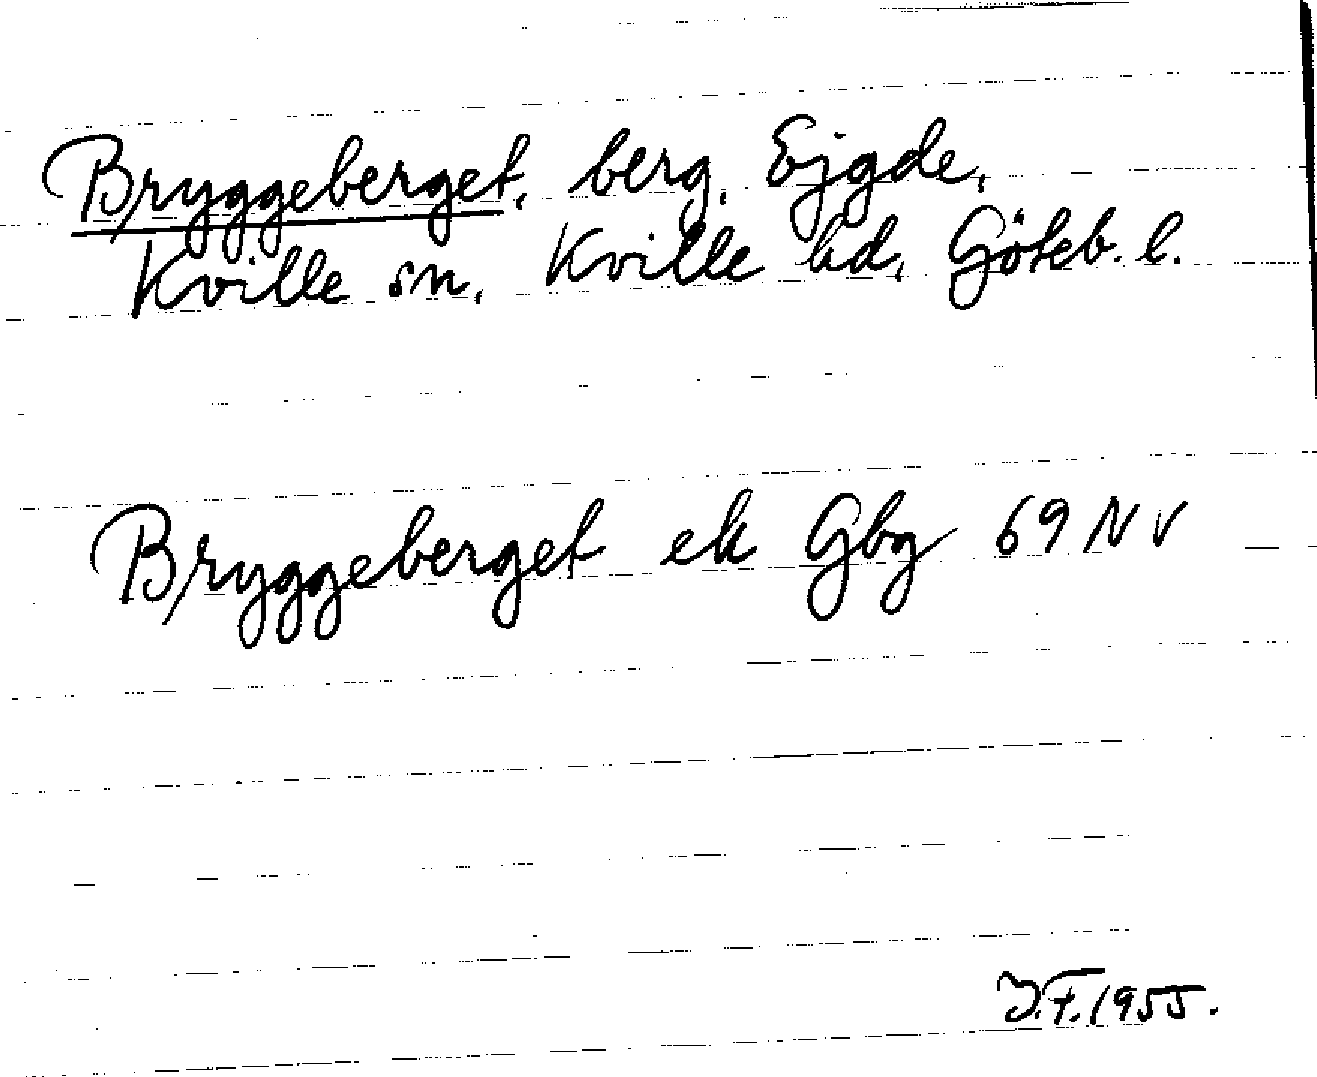 Bryggeberget, berg, Ejgde,
Kville sn, Kville hd, Göteb. l.
Bryggeberget ek Gbg 69 NV
J.F. 1955.